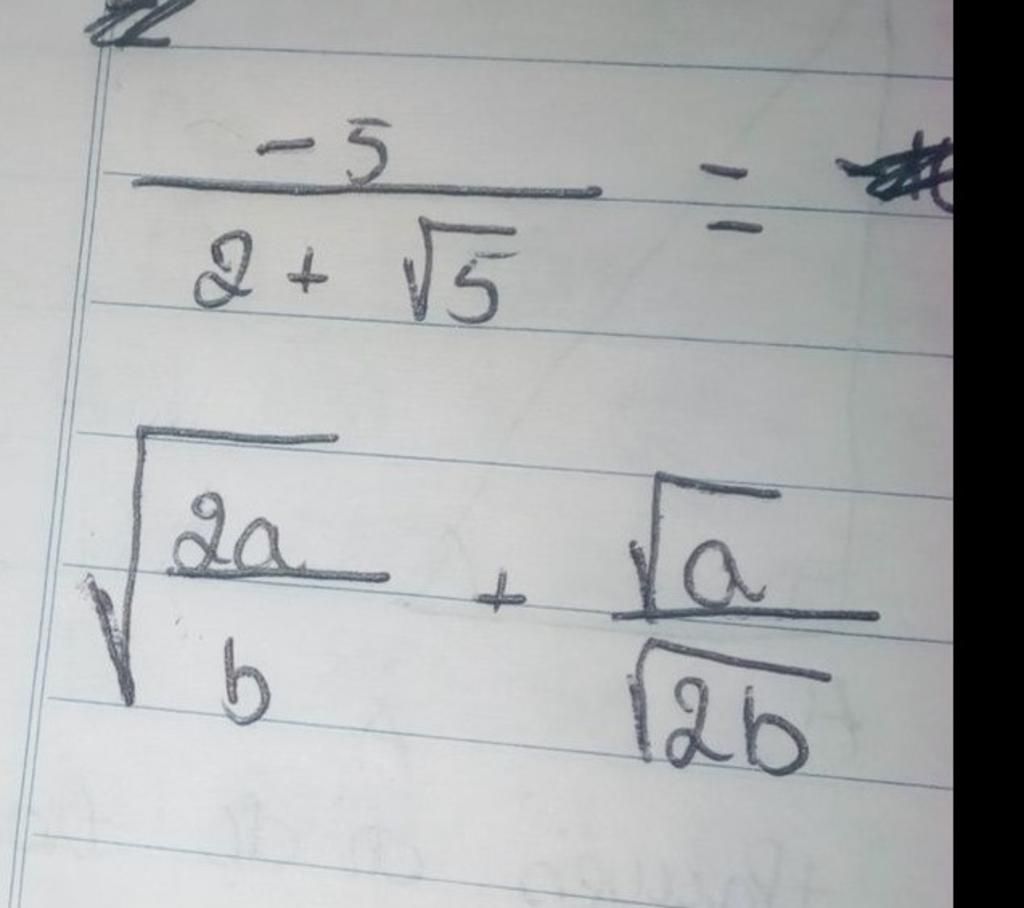 -5 / (2 + √5) =
√(2a / b) + √a / √(2b)